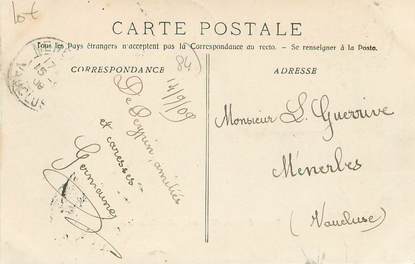 10€
CARTE POSTALE
Tous les Pays étrangers n'acceptent pas la Correspondance au recto. – Se renseigner à la Poste.
CORRESPONDANCE
ADRESSE
84)
14/9/09
De Peypin, amitiés
et caresses
Germaine
Monsieur L. Guerrive
Ménerbes
(Vaucluse)
VAUCLUSE